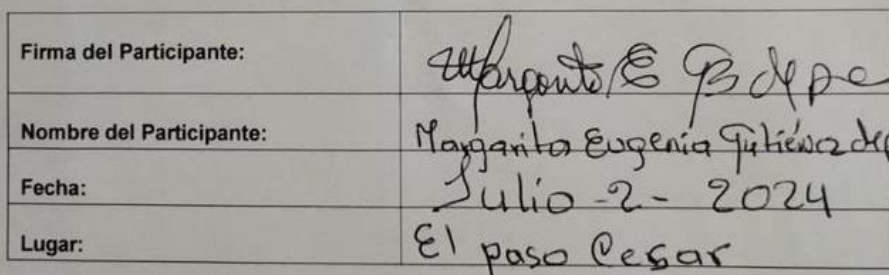 Firma del Participante: Margarita E G de pe
Nombre del Participante: Margarita Eugenia Gutiérrez de
Fecha: Julio -2- 2024
Lugar: El paso Cesar